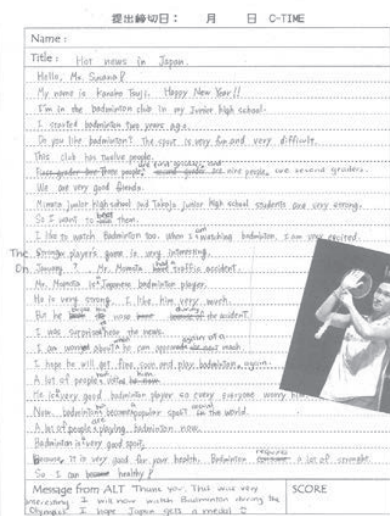 提出締切日： 月 日 C-TIME
Name:
Title: Hot news in Japan.
Hello, Ms. Susana!
My name is Kanoko Tsuji. Happy New Year!!
I'm in the badminton club in my Junior high school.
I started badminton two years ago.
Do you like badminton? The sport is very fun and very difficult.
This club has twelve people.
people, nine people, are second graders.
We are very good friends.
junior high school and junior high school students are very strong.
So I want to beat them.
I like to watch Badminton too. When I am watching badminton, I am very excited.
The Stronger player's game is very interesting.
On January ?, Mr. Momota had a traffic accident.
Mr. Momota is a Japanese badminton player.
He is very strong. I like him very much.
But he broke his nose during the accident.
I was surprised hear the news.
I am worried about when he can again
I hope he will get fine soon and play badminton again.
A lot of people
He is very good badminton player so every everyone worry
Now, badminton popular sport around the world.
A lot of people are playing badminton now.
Badminton is very good sport,
Because, it is very good for your health. Badminton requires a lot of strength.
So I can healthy!
Message from ALT Thank you. That was very
interesting. I will now watch Badminton during the
Olympics. I hope Japan gets a medal
SCORE